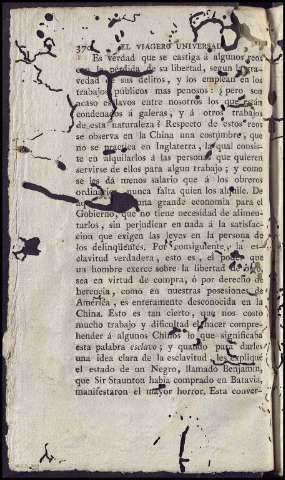 370 EL VIAGERO UNIVERSAL
Es verdad que se castiga á algunos reos
con la pérdida de su libertad, segun la gra-
vedad de sus delitos, y los emplean en los
trabajos públicos mas penosos; pero son
acaso esclavos entre nosotros los que están
condenados á galeras, y á otros trabajos
de esta naturaleza? Respecto de estos reos
se observa en la China una costumbre, que
no se practica en Inglaterra, la qual consis-
te en alquilarlos á las personas que quieren
servirse de ellos para algun trabajo; y como
se les da menos salario que á los obreros
ordinarios, nunca falta quien los alquile. De
aquí una grande economía para el
Gobierno, que no tiene necesidad de alimen-
tarlos, sin perjudicar en nada á la satisfac-
cion que exigen las leyes en la persona de
los delinqüentes. Por consiguiente la es-
clavitud verdadera, esto es, el poder que
un hombre exerce sobre la libertad de otro,
sea en virtud de compra, ó por derecho de
herencia, como en nuestras posesiones de
América, es enteramente desconocida en la
China. Esto es tan cierto, que nos costó
mucho trabajo y dificultad el hacer compre-
hender á algunos Chinos lo que significaba
esta palabra esclavo; y quando para darles
una idea clara de la esclavitud, les expliqué
el estado de un Negro, llamado Benjamin,
que Sir Staunton habia comprado en Batavia,
manifestaron el mayor horror. Esta conver-